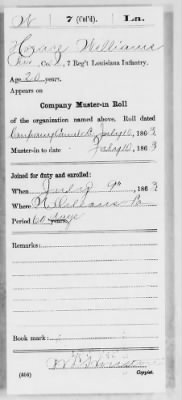 W 7 (Col'd). La.
Horace Williams
, Co. , 7 Reg't Louisiana Infantry.
Age 20 years.
Appears on
Company Muster-in Roll
of the organization named above. Roll dated
July 10, 1863
Muster-in to date July 10, 1863
Joined for duty and enrolled:
When July 9th, 1863
Where N Orleans La
Period 60 days
Remarks:
Book mark:
(466) Copyist.